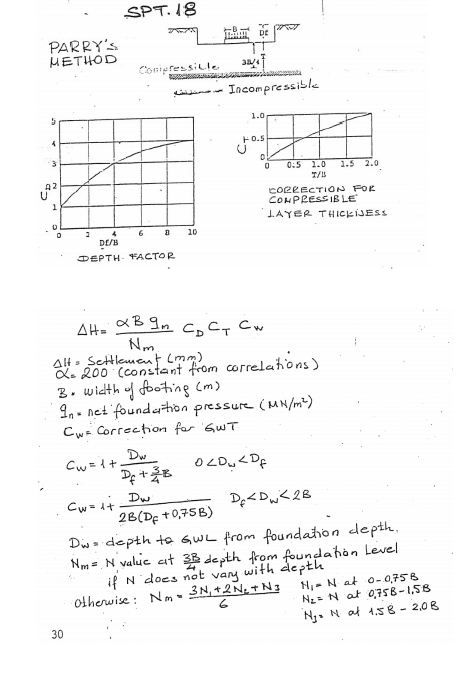 SPT. 18
PARRY'S
METHOD
B
Df
3B/4
Compressible
Incompressible
5
4
3
2
1
0
CD
0 2 4 6 8 10
Df/B
DEPTH FACTOR
1.0
0.5
0
CT
0 0.5 1.0 1.5 2.0
T/B
CORRECTION FOR
COMPRESSIBLE
LAYER THICKNESS
ΔH = αB qn / Nm CD CT Cw
ΔH = Settlement (mm)
α = 200 (constant from correlations)
B = width of footing (m)
qn = net foundation pressure (MN/m²)
Cw = Correction for GWT
Cw = 1 + Dw / (Df + 3/4 B) 0 < Dw < Df
Cw = 1 + Dw / 2B(Df + 0,75B) Df < Dw < 2B
Dw = depth to GWL from foundation depth.
Nm = N value at 3B/4 depth from foundation Level
if N does not vary with depth
otherwise : Nm = (3N1 + 2N2 + N3) / 6
N1 = N at 0 - 0,75B
N2 = N at 0,75B - 1,5B
N3 = N at 1.5B - 2,0B
30